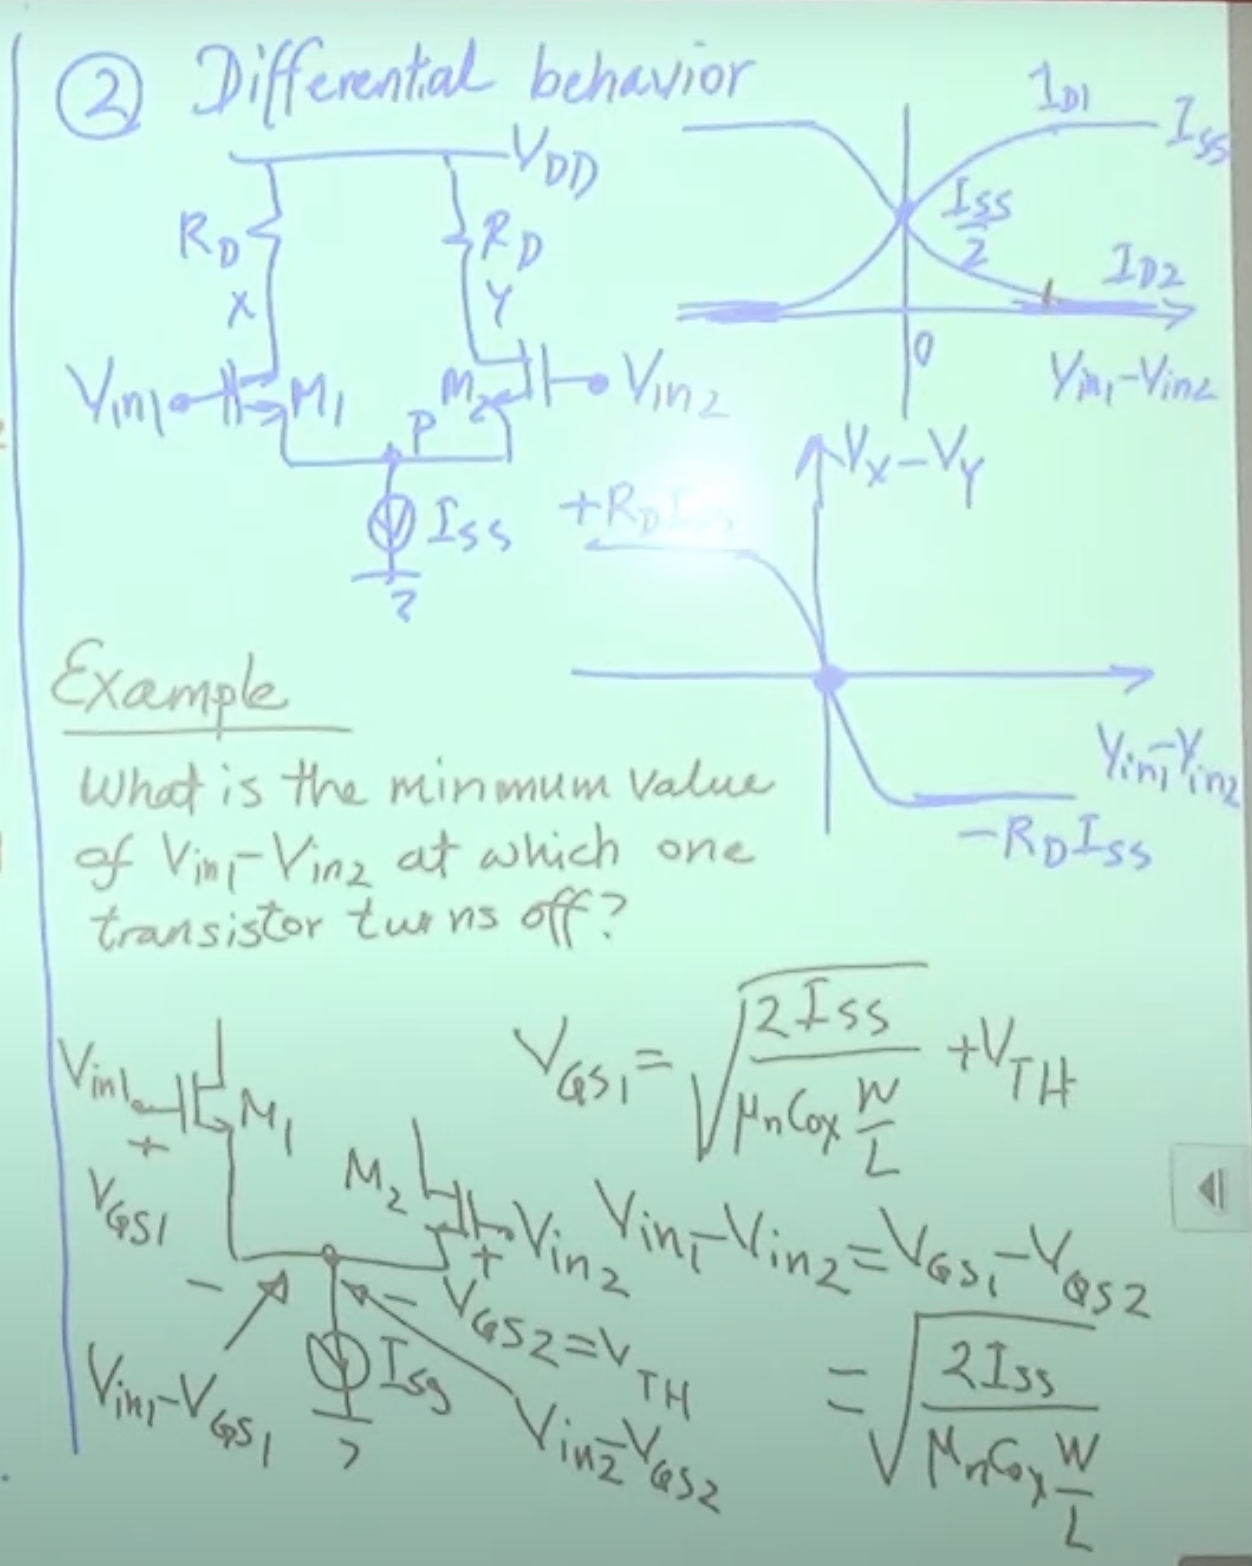 ② Differential behavior
VDD
RD
RD
X
Y
Vin1
M1
M2
Vin2
P
ISS
ID1
ISS
ISS/2
ID2
0
Vin1-Vin2
VX-VY
+RDISS
Vin1-Vin2
-RDISS
Example
What is the minimum value
of Vin1-Vin2 at which one
transistor turns off?
Vin1
M1
+
VGS1
-
M2
Vin2
+
-
VGS2=VTH
ISS
Vin1-VGS1
Vin2-VGS2
VGS1=√(2ISS/(μnCox W/L))+VTH
Vin1-Vin2=VGS1-VGS2
=√(2ISS/(μnCox W/L))